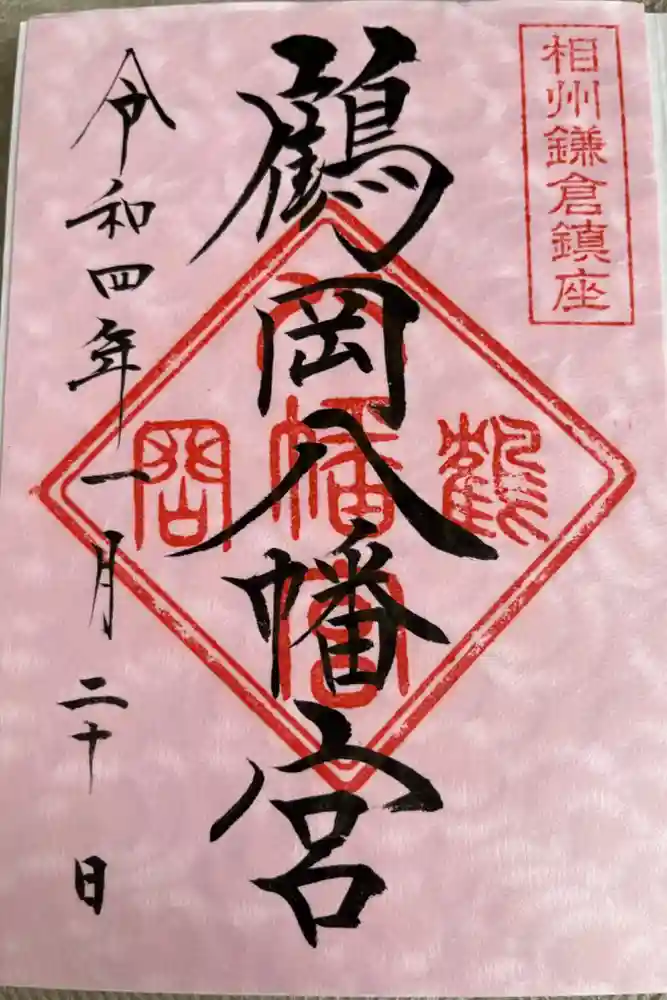 相州鎌倉鎮座
鶴岡八幡宮
鶴
八幡宮
岡
令和四年一月二十日